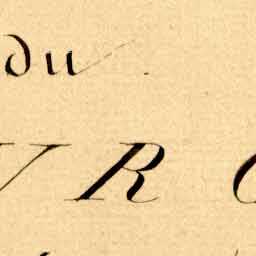 du
V R